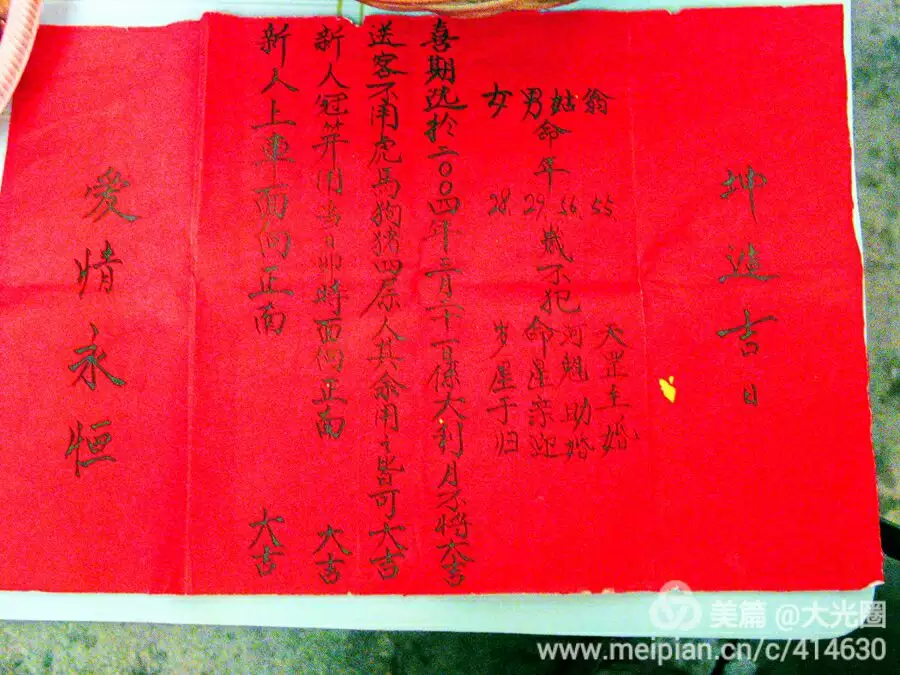 坤造吉日
翁 55 天罡主婚
姑 56 河魁助婚
男命年29岁不犯命星亲迎
女 28 岁星于归
喜期选於二〇〇四年二月二十一日係大利月不将大吉
送客不用虎馬狗猪四属人其余用之皆可大吉
新人冠笄用当日卯時面向正南 大吉
新人上車面向正南 大吉
愛情永恒
美篇 @大光圈
www.meipian.cn/c/414630